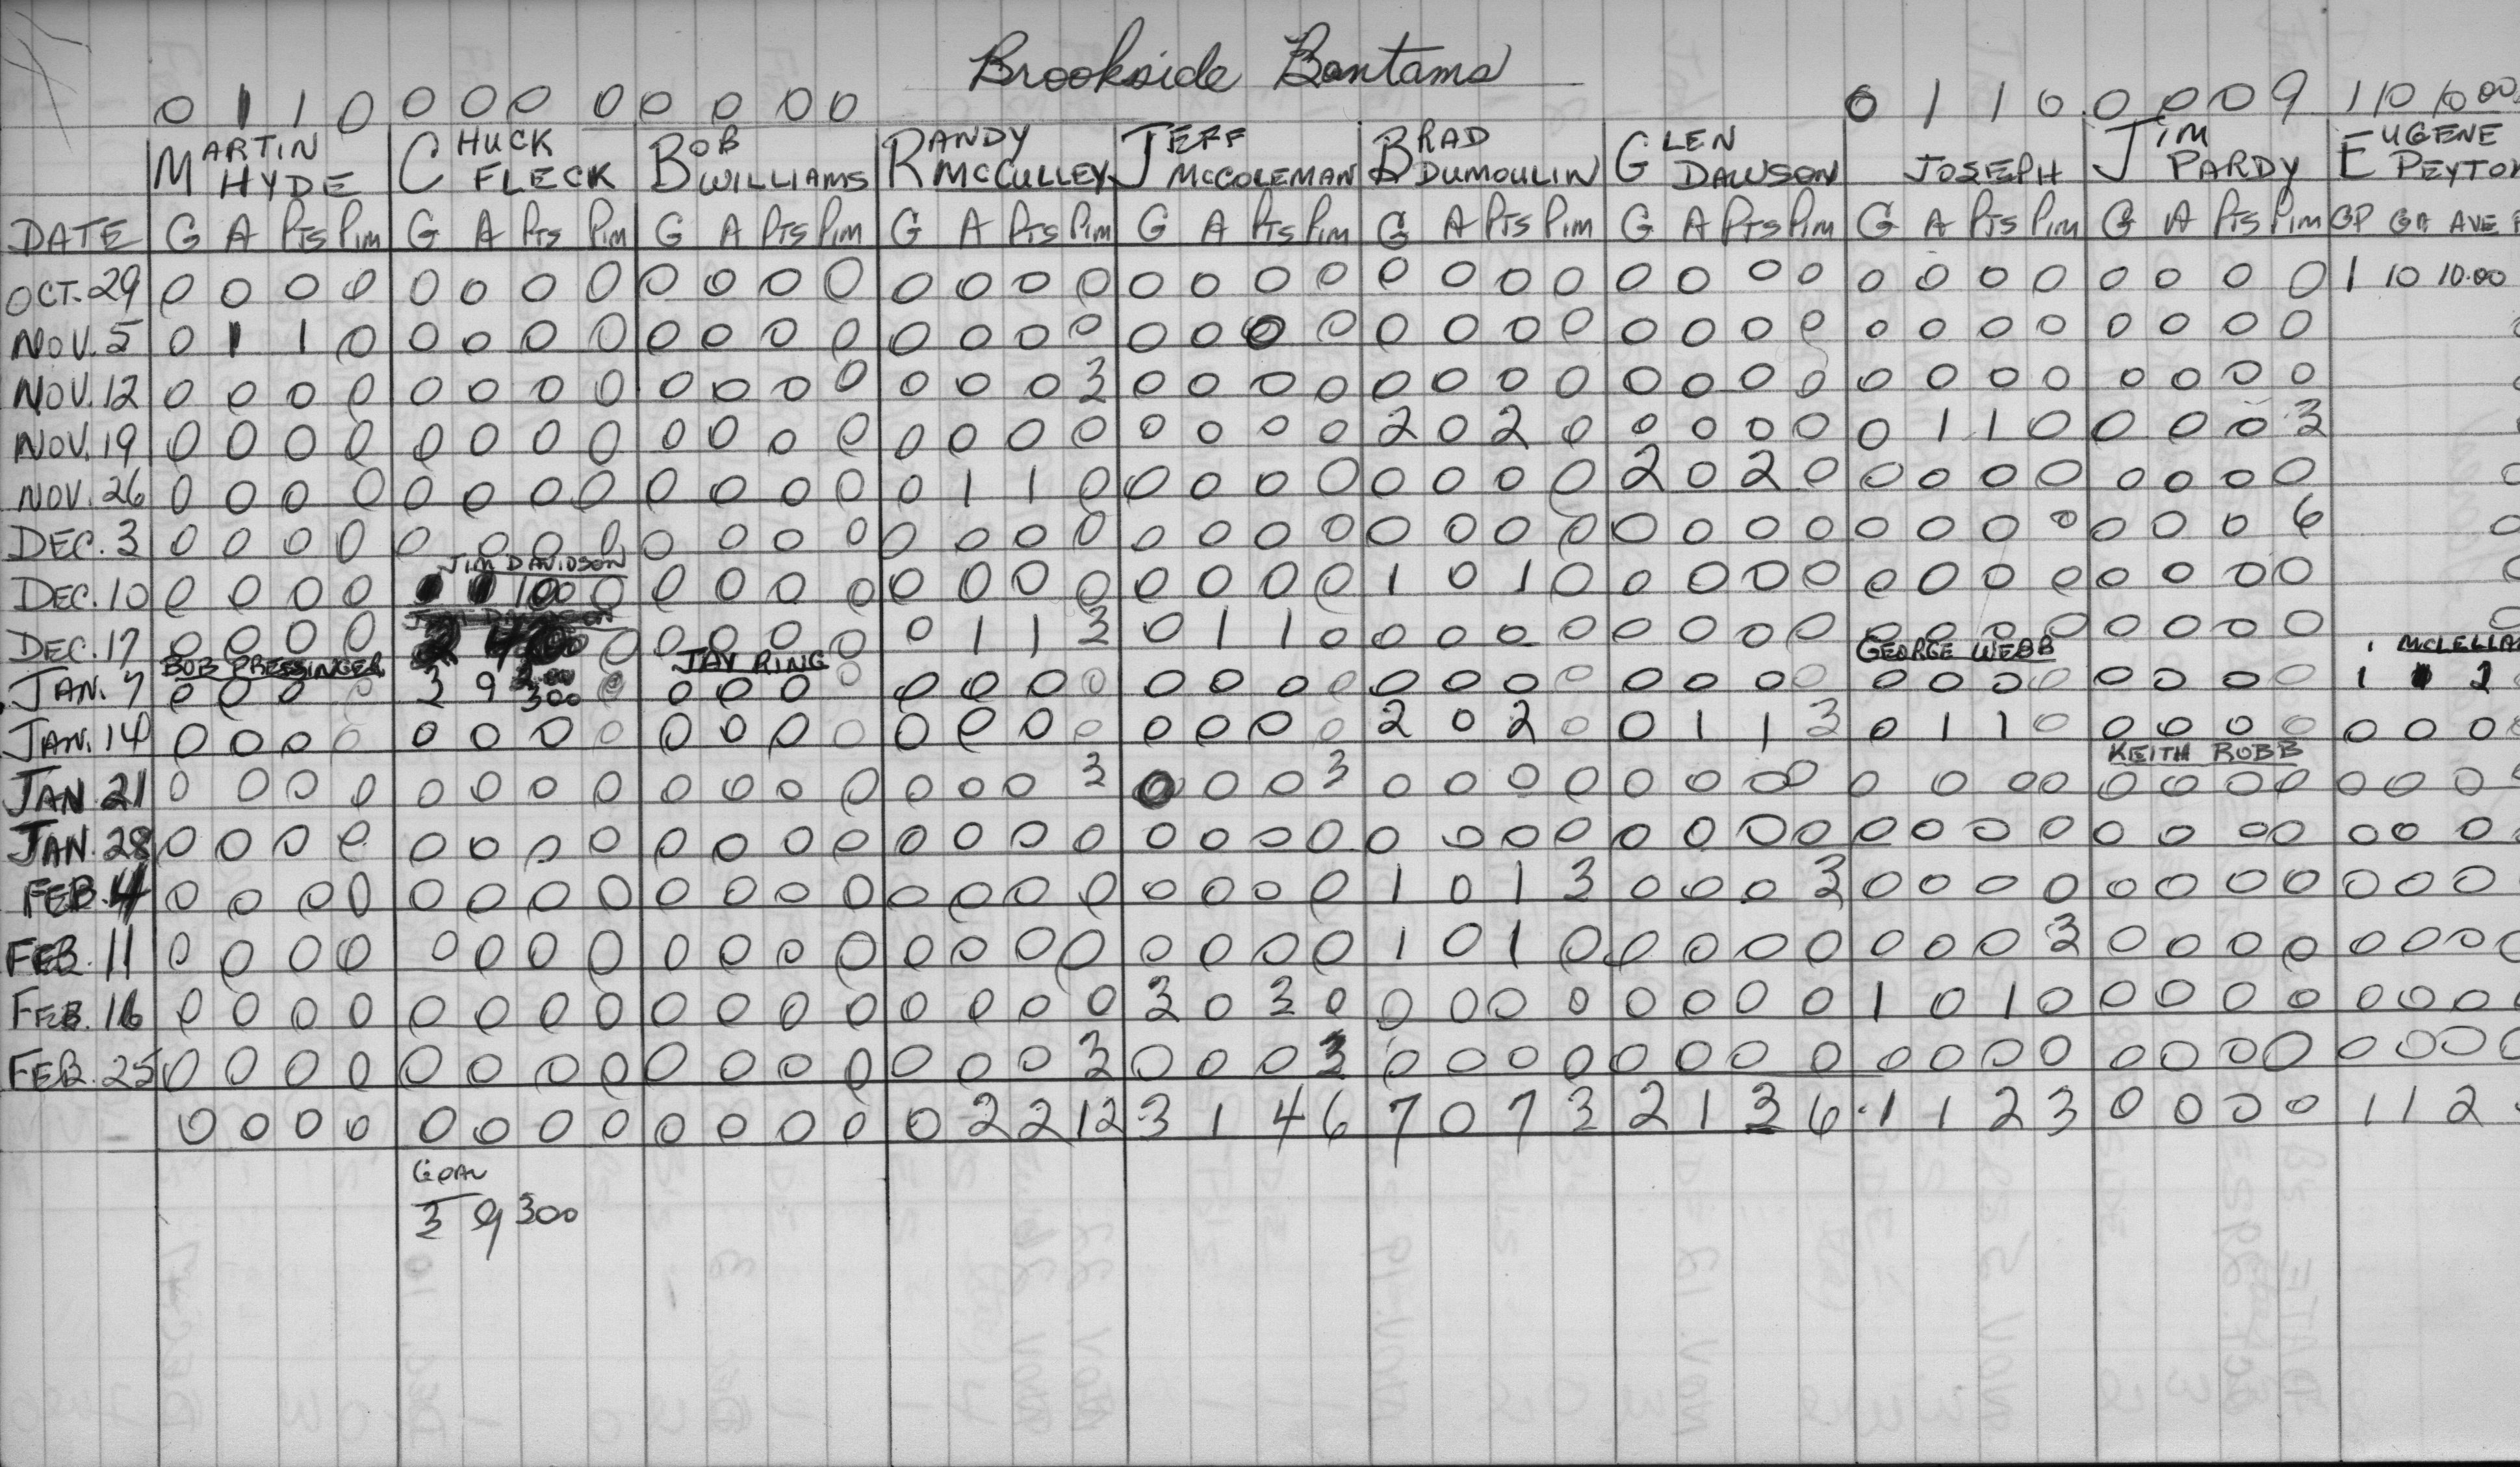 Brookside Bantams
0 1 1 0 0 0 0 0 0 0 0 0 0 1 1 0 0 0 0 9 1 10 10.00
MARTIN HYDE CHUCK FLECK BOB WILLIAMS RANDY MCCULLEY JEFF MCCOLEMAN BRAD DUMOULIN GLEN DAWSON JOSEPH JIM PARDY EUGENE PEYTON
DATE G A Pts Pim G A Pts Pim G A Pts Pim G A Pts Pim G A Pts Pim G A Pts Pim G A Pts Pim G A Pts Pim G A Pts Pim GP GA AVE
OCT. 29 0 0 0 0 0 0 0 0 0 0 0 0 0 0 0 0 0 0 0 0 0 0 0 0 0 0 0 0 0 0 0 0 0 0 0 0 1 10 10.00
NOV. 5 0 1 1 0 0 0 0 0 0 0 0 0 0 0 0 0 0 0 0 0 0 0 0 0 0 0 0 0 0 0 0 0 0 0 0 0
NOV. 12 0 0 0 0 0 0 0 0 0 0 0 0 0 0 0 3 0 0 0 0 0 0 0 0 0 0 0 0 0 0 0 0 0 0 0 0
NOV. 19 0 0 0 0 0 0 0 0 0 0 0 0 0 0 0 0 0 0 0 0 2 0 2 0 0 0 0 0 0 1 1 0 0 0 0 3
NOV. 26 0 0 0 0 0 0 0 0 0 0 0 0 0 1 1 0 0 0 0 0 0 0 0 0 2 0 2 0 0 0 0 0 0 0 0 0
DEC. 3 0 0 0 0 0 0 0 0 0 0 0 0 0 0 0 0 0 0 0 0 0 0 0 0 0 0 0 0 0 0 0 0 0 0 0 6
JIM DAVIDSON
DEC. 10 0 0 0 0 0 0 0 0 0 0 0 0 0 0 0 0 0 1 0 1 0 0 0 0 0 0 0 0 0 0 0 0 0
DEC. 17 0 0 0 0 0 0 0 0 0 0 1 1 3 0 1 1 0 0 0 0 0 0 0 0 0 0 0 0 0 0 0 0 0
BOB PRESSINGER JAY RING GEORGE WEBB MCLELLA
JAN. 7 0 0 0 0 3 9 300 0 0 0 0 0 0 0 0 0 0 0 0 0 0 0 0 0 0 0 0 0 0 0 0 0 0 0 0 1 1 2
JAN. 14 0 0 0 0 0 0 0 0 0 0 0 0 0 0 0 0 0 0 0 0 2 0 2 0 0 1 1 3 0 1 1 0 0 0 0 0 0 0 0
KEITH ROBB
JAN 21 0 0 0 0 0 0 0 0 0 0 0 0 0 0 0 3 0 0 0 3 0 0 0 0 0 0 0 0 0 0 0 0 0 0 0 0 0 0 0
JAN. 28 0 0 0 0 0 0 0 0 0 0 0 0 0 0 0 0 0 0 0 0 0 0 0 0 0 0 0 0 0 0 0 0 0 0 0 0 0 0 0
FEB. 4 0 0 0 0 0 0 0 0 0 0 0 0 0 0 0 0 0 0 0 0 1 0 1 3 0 0 0 3 0 0 0 0 0 0 0 0 0 0 0
FEB. 11 0 0 0 0 0 0 0 0 0 0 0 0 0 0 0 0 0 0 0 0 1 0 1 0 0 0 0 0 0 0 0 3 0 0 0 0 0 0 0 0
FEB. 16 0 0 0 0 0 0 0 0 0 0 0 0 0 0 0 0 3 0 3 0 0 0 0 0 0 0 0 0 1 0 1 0 0 0 0 0 0 0 0
FEB. 25 0 0 0 0 0 0 0 0 0 0 0 0 0 0 0 3 0 0 0 3 0 0 0 0 0 0 0 0 0 0 0 0 0 0 0 0 0 0 0 0
0 0 0 0 0 0 0 0 0 0 0 0 0 2 2 12 3 1 4 6 7 0 7 3 2 1 3 6 1 1 2 3 0 0 0 0 1 1 2
GOAL
3 9 300